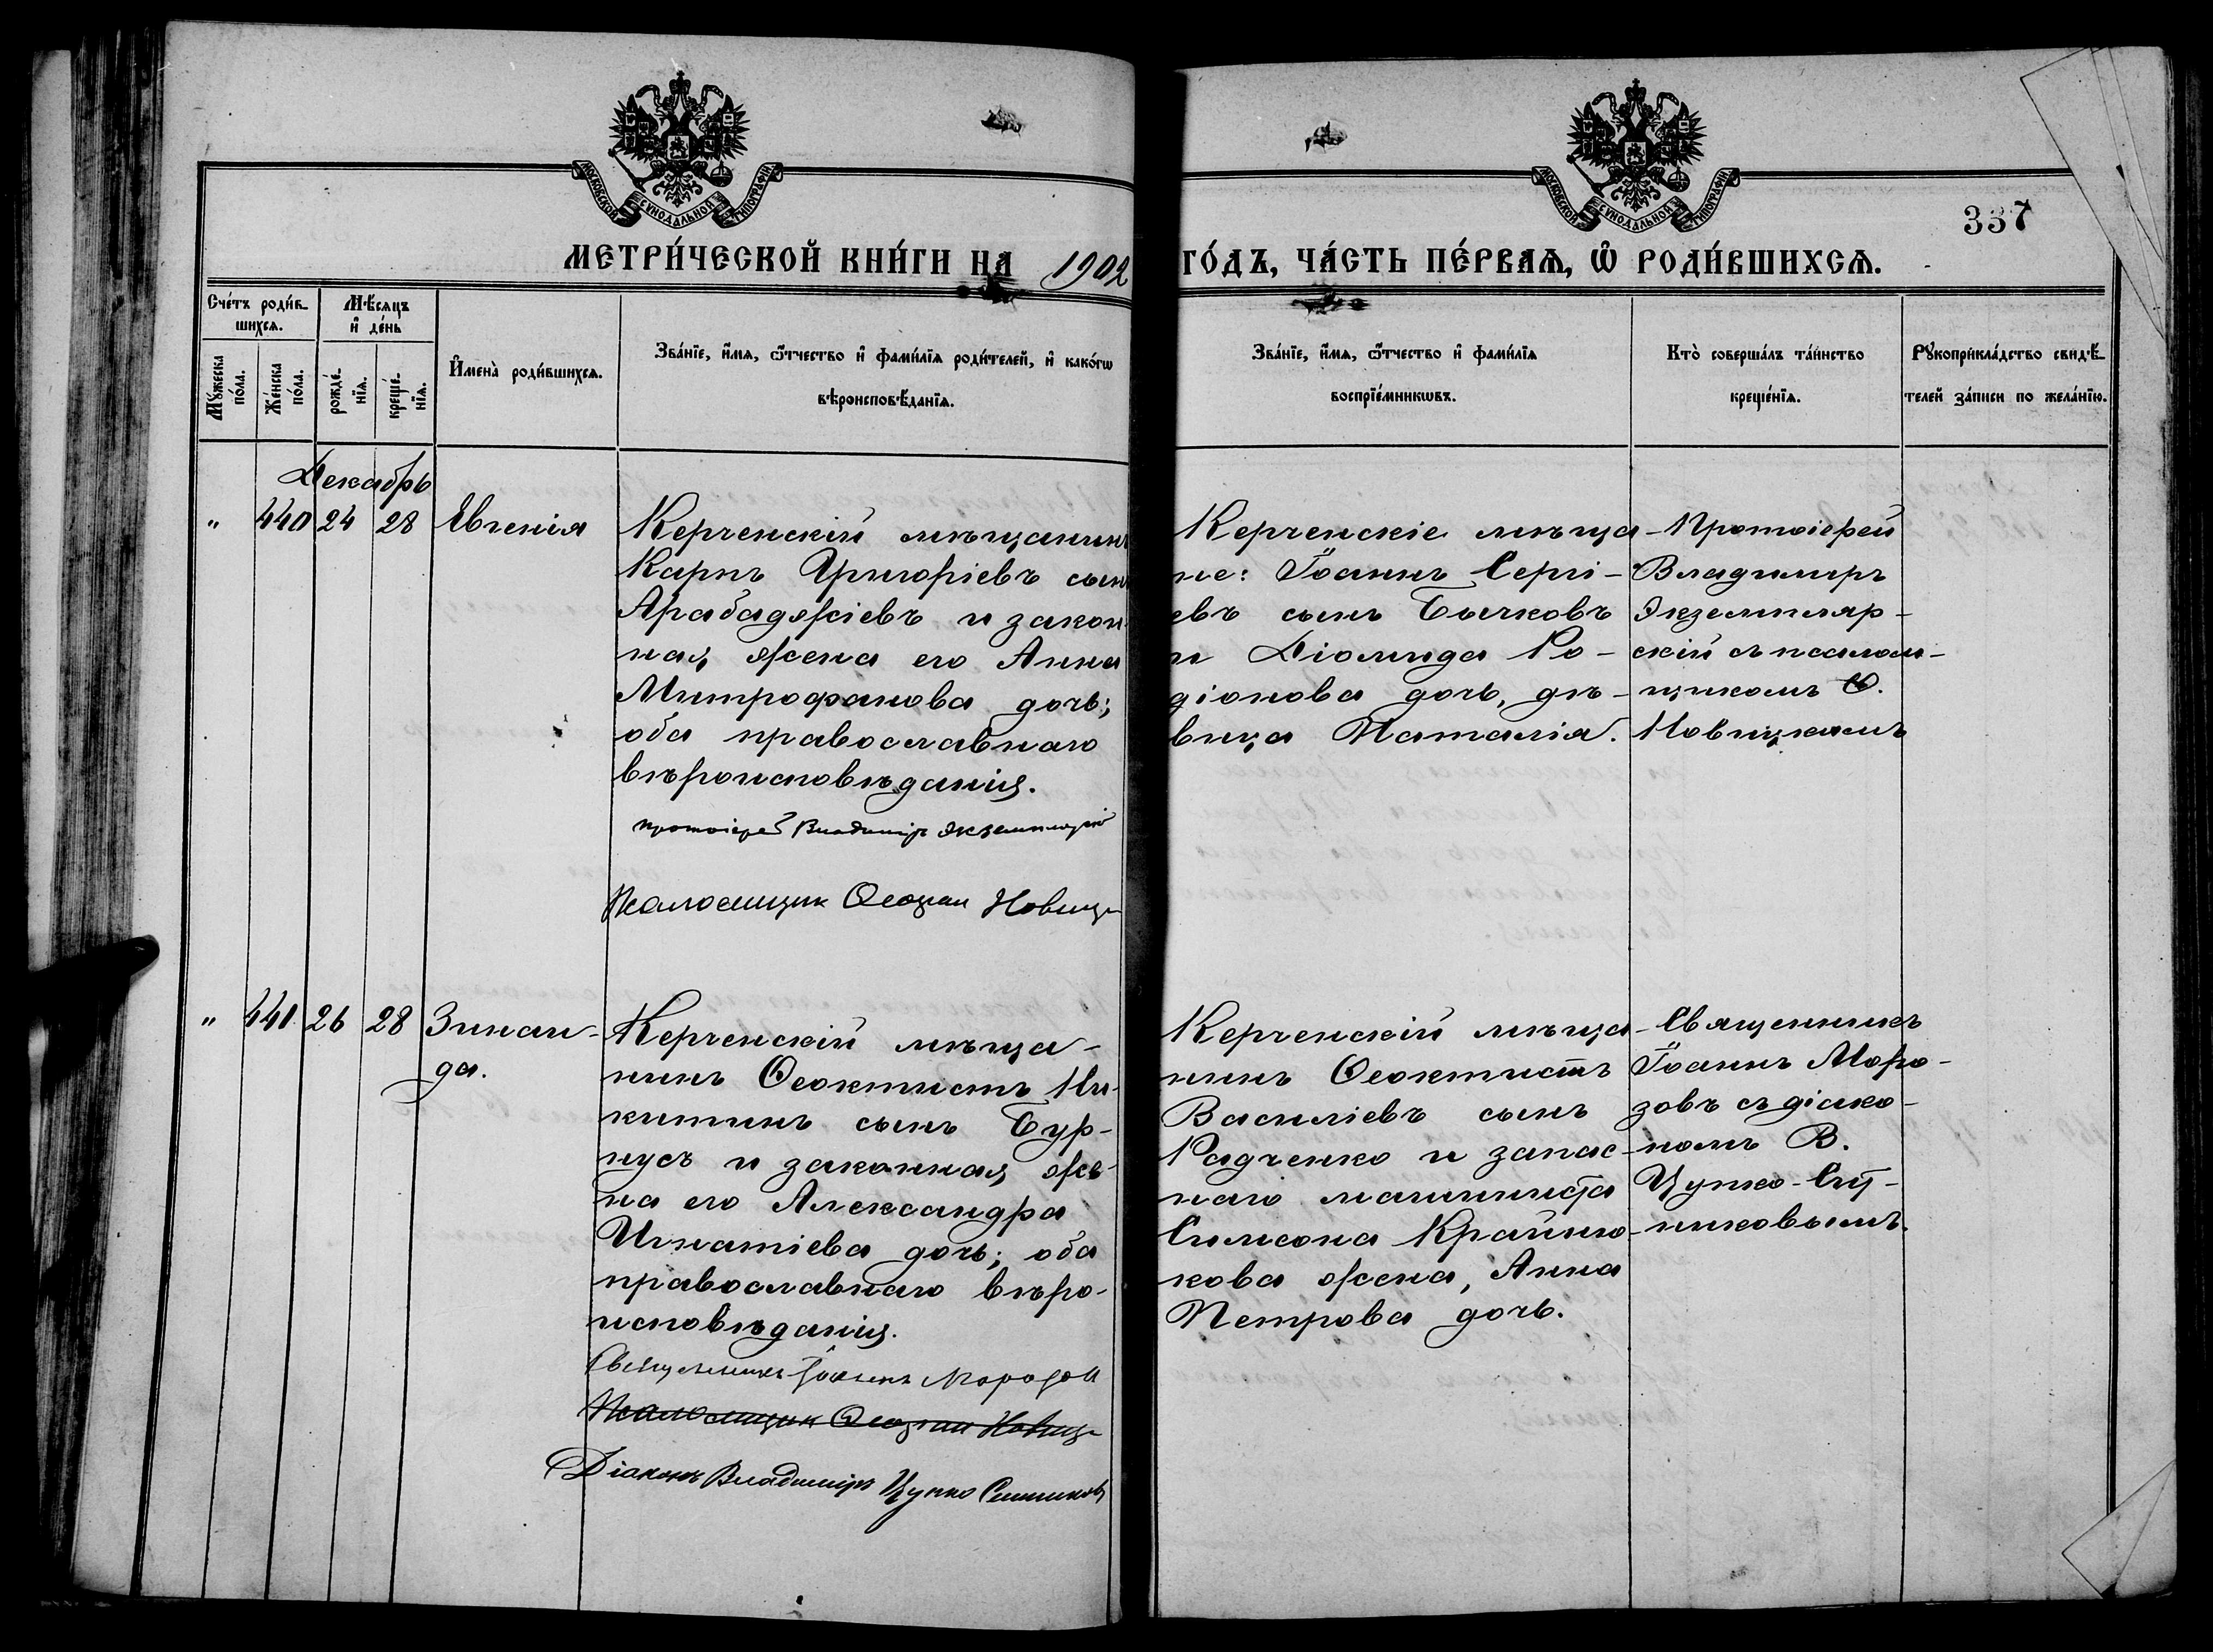 МОСКОВСКОЙ СУНОДАЛЬНОЙ ТИПОГРАФІИ
МОСКОВСКОЙ СУНОДАЛЬНОЙ ТИПОГРАФІИ
337
МЕТРИ́ЧЕСКОЙ КНИ́ГИ НА 1902 ГО́ДЪ, ЧА́СТЬ ПЕ́РВАѦ, Ѡ҆ РОДИ́ВШИХСѦ.
Сче́тъ роди́в-
шихсѧ.
Мꙋжеска
по́ла.
Же́нска
по́ла.
Мѣ́сѧцъ
и҆ де́нь
рожде́-
нїѧ.
креще́-
нїѧ.
И҆мена̀ роди́вшихсѧ.
Зва́нїе, и҆́мѧ, ѻ҆́тчество и҆ фамѝлїѧ роди́телей, и҆ како́гѡ
вѣроисповѣ́данїѧ.
Зва́нїе, и҆́мѧ, ѻ҆́тчество и҆ фамѝлїѧ
воспрїе́мникѡвъ.
Кто̀ соверша́лъ та́инство
креще́нїѧ.
Рꙋкоприкла́дство свидѣ́-
телей за́писи по жела́нїю.
Декабрь
" 440 24 28 Евгенія
Керченскій мѣщанинъ
Карпъ Григоріевъ сынъ
Арабаджіевъ и закон-
ная жена его Анна
Митрофанова дочь;
оба православнаго
вѣроисповѣданія.
протоіерей Владиміръ Экземплярскій
Псаломщик Ѳеофан Новиц
Керченскіе мѣща-
не: Іоаннъ Сергі-
евъ сынъ Бычковъ
и Діомида Ро-
діонова дочь, дѣ-
вица Наталія.
Протоіерей
Владимиръ
Экземпляр-
скій съ псалом-
щикомъ Ѳ.
Новицкимъ
" 441. 26 28 Зинаи-
да.
Керченскій мѣща-
нинъ Ѳеоктистъ Ни-
китинъ сынъ Бур-
нусъ и законная же-
на его Александра
Игнатіева дочь; оба
православнаго вѣро-
исповѣданія.
Священникъ Іоаннъ Морозов
Псаломщик Ѳеофан Новиц
Діаконъ Владиміръ Цупко Ситников
Керченскій мѣща-
нинъ Ѳеоктистъ
Василіевъ сынъ
Радченко и запас-
наго машиниста
Симеона Крайню-
кова жена, Анна
Петрова дочь.
Священникъ
Іоаннъ Моро-
зовъ съ діако-
номъ В.
Цупко-Сит-
никовымъ.